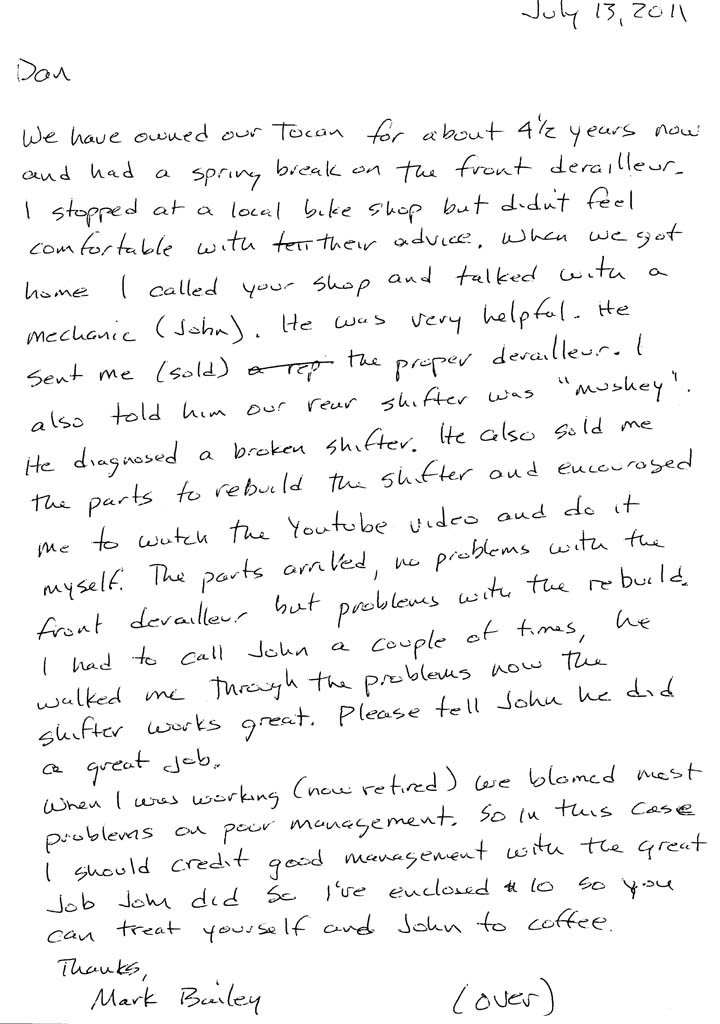 July 13, 2011
Dan
We have owned our Tocan for about 4 1/2 years now
and had a spring break on the front derailleur.
I stopped at a local bike shop but didn't feel
comfortable with their advice. When we got
home I called your shop and talked with a
mechanic (John). He was very helpful. He
sent me (sold) a rep the proper derailleur. I
also told him our rear shifter was "mushey".
He diagnosed a broken shifter. He also sold me
the parts to rebuild the shifter and encouraged
me to watch the Youtube video and do it
myself. The parts arrived, no problems with the
front derailleur but problems with the rebuild.
I had to call John a couple of times, he
walked me through the problems now the
shifter works great. Please tell John he did
a great job.
When I was working (now retired) we blamed most
problems on poor management. So in this case
I should credit good management with the great
job John did so I've enclosed $10 so you
can treat yourself and John to coffee.
Thanks,
Mark Bailey (over)